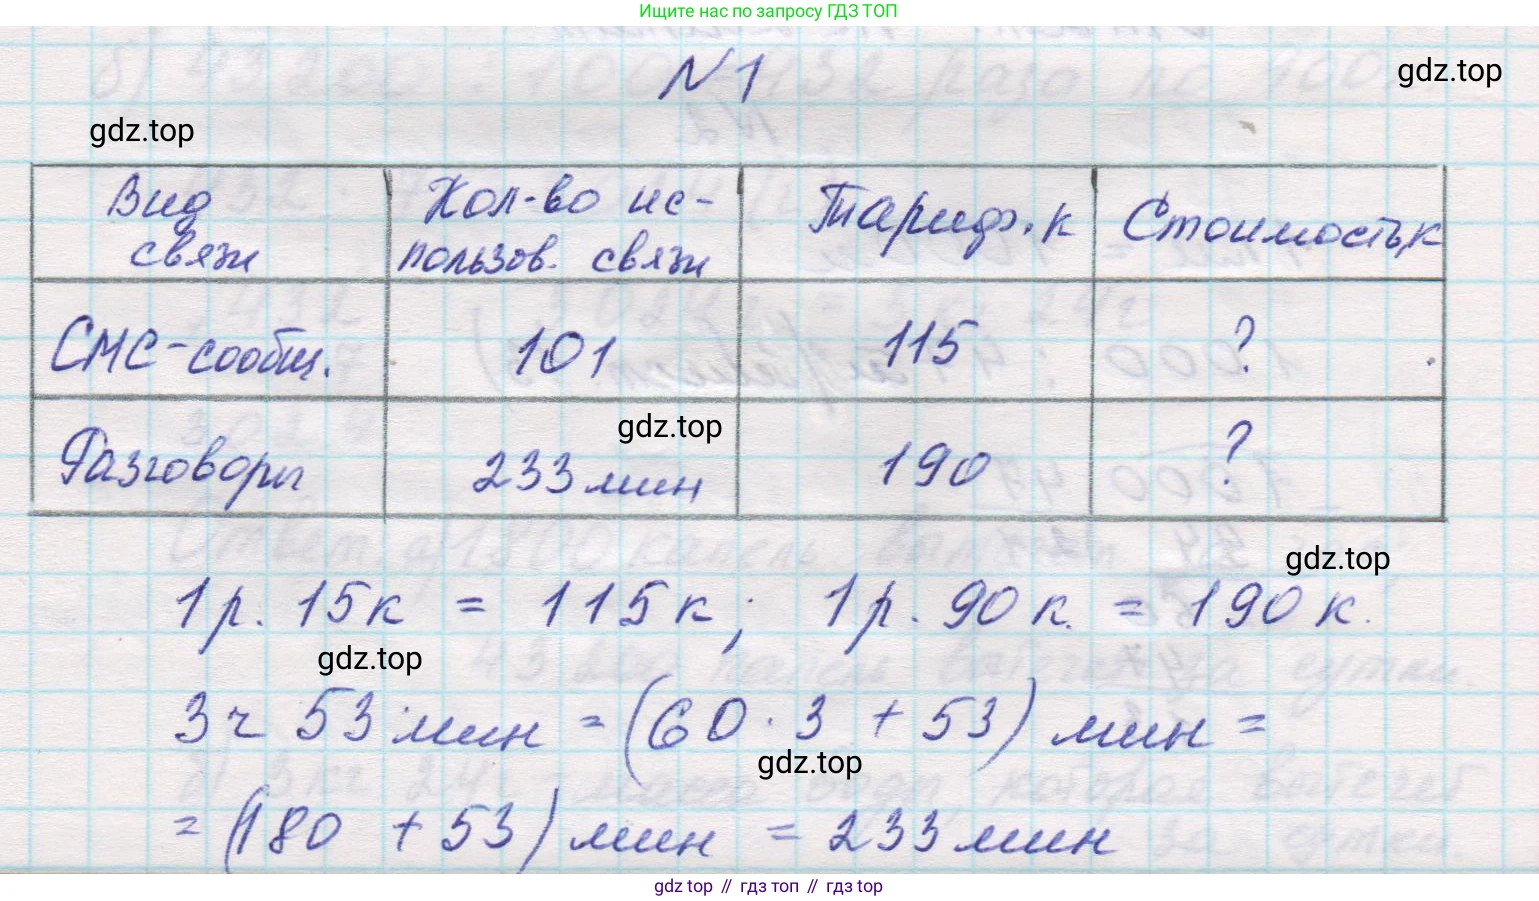 Ищите нас по запросу ГДЗ ТОП
N 1
gdz.top
gdz.top
Вид связи
Кол-во использов. связи
Тариф. к
Стоимость, к
СМС-сообщ.
101
115
?
gdz.top
Разговоры
233 мин
190
?
gdz.top
1 р. 15 к = 115 к; 1 р. 90 к. = 190 к.
gdz.top
3 ч 53 мин = (60 · 3 + 53) мин =
gdz.top
= (180 + 53) мин = 233 мин
gdz top // гдз топ // гдз top